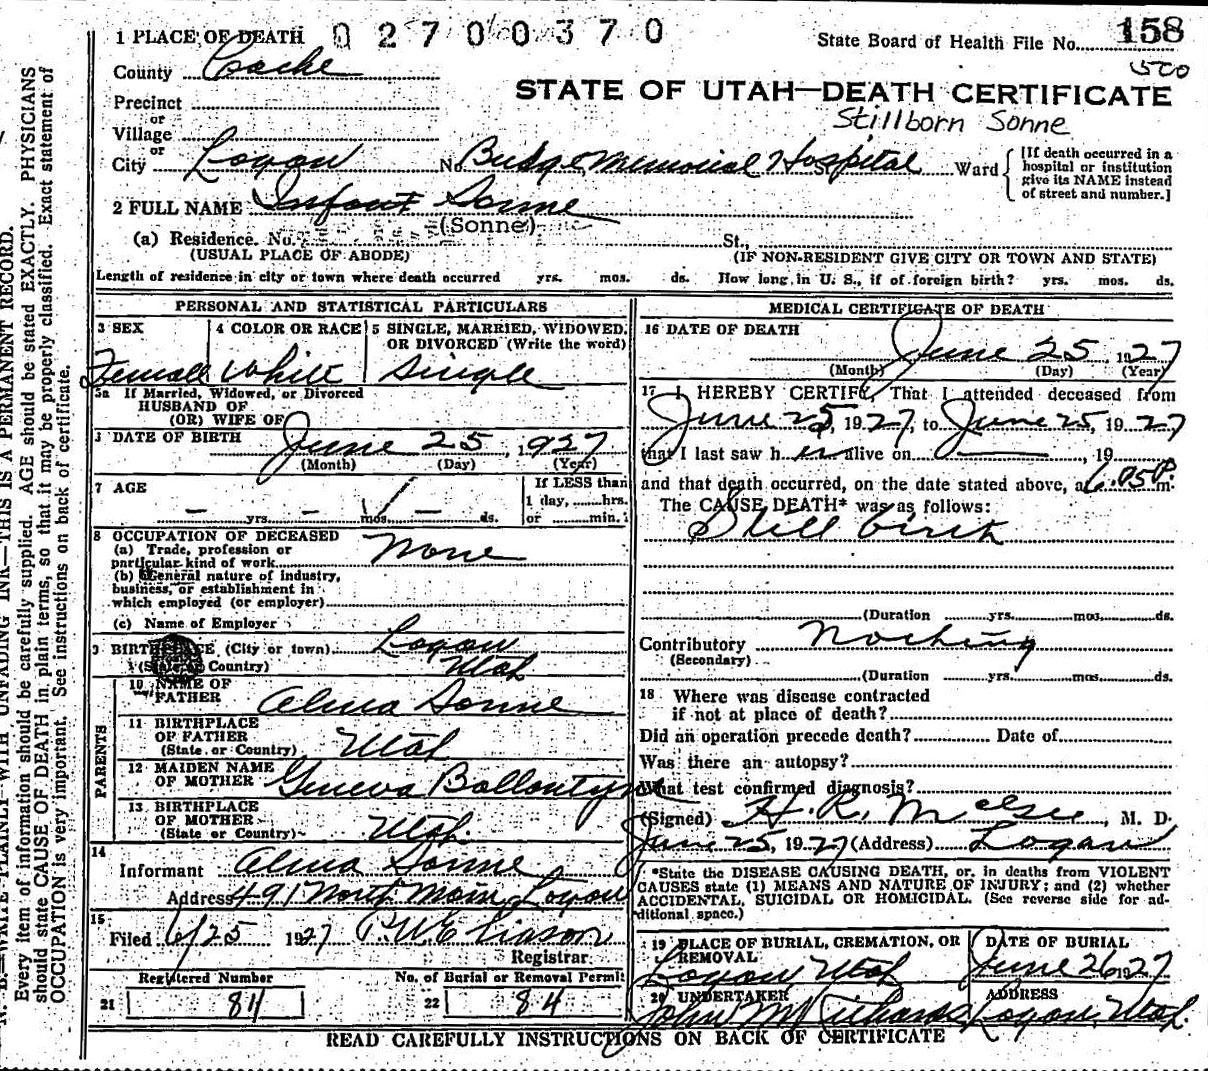 1 PLACE OF DEATH 02700370
State Board of Health File No. 158
County Cache
500
STATE OF UTAH—DEATH CERTIFICATE
Precinct
or
Village
Stillborn Sonne
or
City Logan No. Budge Memorial Hospital St. Ward
[If death occurred in a
hospital or institution
give its NAME instead
of street and number.]
2 FULL NAME Infant Sonne
(Sonne)
(a) Residence. No. St.,
(USUAL PLACE OF ABODE) (IF NON-RESIDENT GIVE CITY OR TOWN AND STATE)
Length of residence in city or town where death occurred yrs. mos. ds. How long in U. S., if of foreign birth? yrs. mos. ds.
PERSONAL AND STATISTICAL PARTICULARS
3 SEX 4 COLOR OR RACE 5 SINGLE, MARRIED, WIDOWED,
OR DIVORCED (Write the word)
Female White Single
5a If Married, Widowed, or Divorced
HUSBAND OF
(OR) WIFE OF
DATE OF BIRTH June 25, 1927
(Month) (Day) (Year)
7 AGE If LESS than
1 day,......hrs.
— yrs. — mos. — ds. or ......min.
8 OCCUPATION OF DECEASED
(a) Trade, profession or
particular kind of work None
(b) General nature of industry,
business, or establishment in
which employed (or employer)
(c) Name of Employer
9 BIRTHPLACE (City or town) Logan
(State or Country) Utah
PARENTS
10 NAME OF
FATHER Alma Sonne
11 BIRTHPLACE
OF FATHER
(State or Country) Utah
12 MAIDEN NAME
OF MOTHER Geneva Ballantyne
13 BIRTHPLACE
OF MOTHER
(State or Country) Utah.
14
Informant Alma Sonne
Address 491 North Main, Logan
15
Filed 6/25 1927 P.W. Eliason
Registrar
Registered Number No. of Burial or Removal Permit
21 84 22 84
MEDICAL CERTIFICATE OF DEATH
16 DATE OF DEATH
June 25, 1927
(Month) (Day) (Year)
17 I HEREBY CERTIFY, That I attended deceased from
June 25, 1927, to June 25, 1927
that I last saw her alive on ——, 19
and that death occurred, on the date stated above, at 6.05 P. m.
The CAUSE DEATH* was as follows:
Still birth
(Duration yrs. mos. ds.
Contributory Nothing
(Secondary)
(Duration yrs. mos. ds.
18 Where was disease contracted
if not at place of death?
Did an operation precede death? Date of
Was there an autopsy?
What test confirmed diagnosis?
(Signed) H. R. McGee, M. D.
June 25, 1927 (Address) Logan
*State the DISEASE CAUSING DEATH, or, in deaths from VIOLENT
CAUSES state (1) MEANS AND NATURE OF INJURY; and (2) whether
ACCIDENTAL, SUICIDAL OR HOMICIDAL. (See reverse side for ad-
ditional space.)
19 PLACE OF BURIAL, CREMATION, OR
REMOVAL
Logan Utah
DATE OF BURIAL
June 26 1927
20 UNDERTAKER ADDRESS
John M Richards Logan, Utah.
READ CAREFULLY INSTRUCTIONS ON BACK OF CERTIFICATE
N. B.—WRITE PLAINLY WITH UNFADING INK—THIS IS A PERMANENT RECORD.
Every item of information should be carefully supplied. AGE should be stated EXACTLY. PHYSICIANS
should state CAUSE OF DEATH in plain terms, so that it may be properly classified. Exact statement of
OCCUPATION is very important. See instructions on back of certificate.